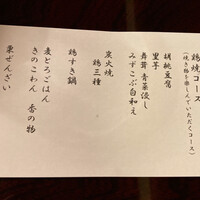 鶏焼コース
(焼き物を楽しんでいただくコース)
胡桃豆腐
里芋
舞茸 青菜浸し
みずこぶ白和え
炭火焼
鶏三種
鶏すき鍋
麦とろごはん
きのこわん 香の物
栗ぜんざい